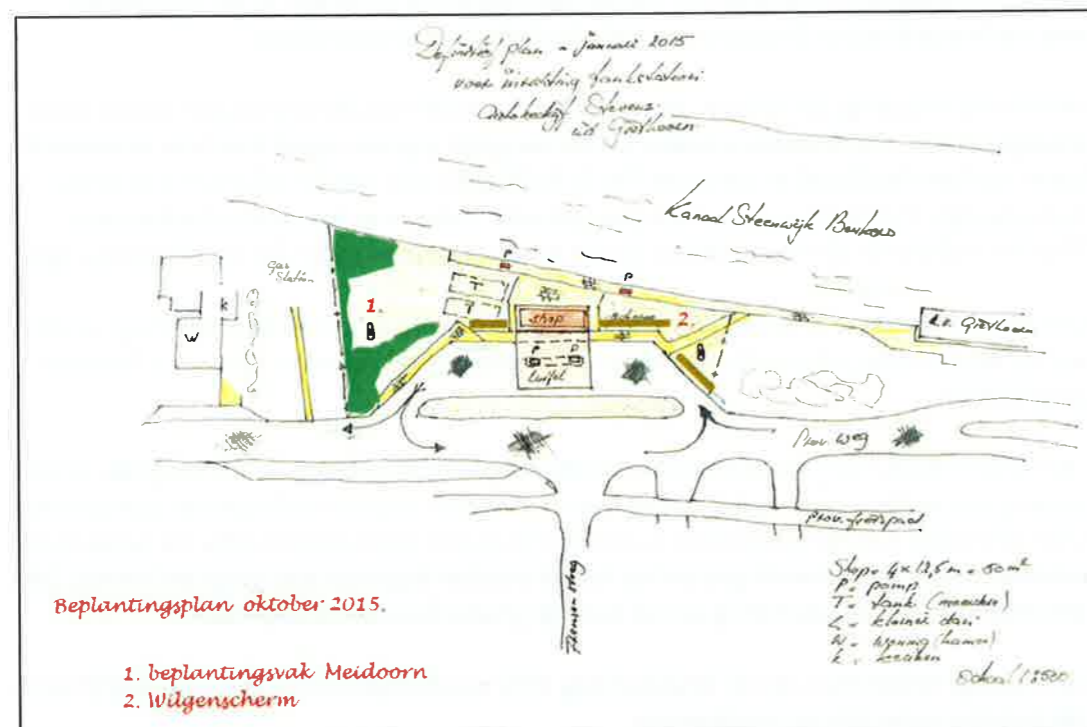 Definitief plan - januari 2015
voor inrichting tankstation
Autobedrijf Stevens
uit Giethoorn
Kanaal Steenwijk Beukers
gas
station
P
P
1.
T
T
shop
2.
k
W
P P
luifel
Prov. weg
Prov. fietspad
Shop = 4 x 12,5 m = 50 m²
P = pomp
T = tank
W = woning
k = keuken
Schaal 1:500
Beplantingsplan oktober 2015.
1. beplantingsvak Meidoorn
2. Wilgenscherm